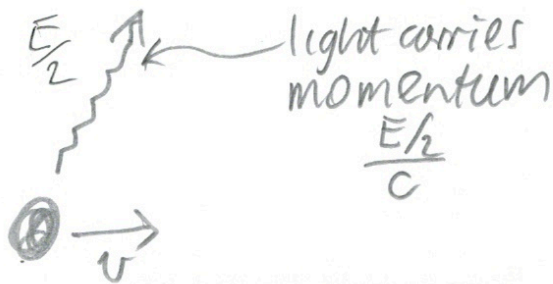 E/2
light carries
momentum
E/2
c
v